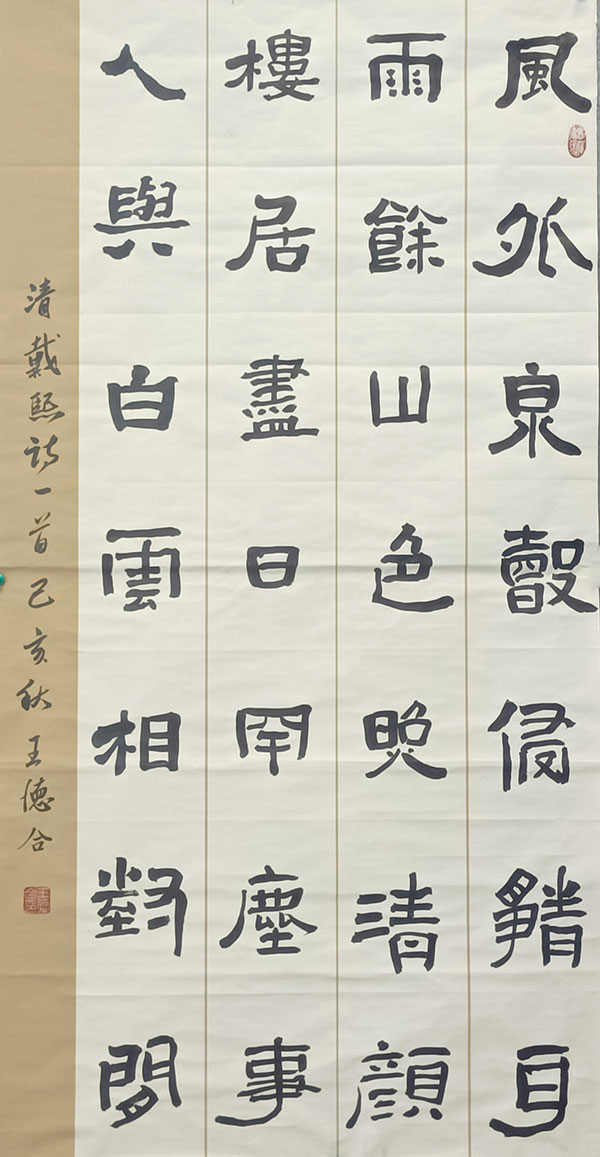 風外泉聲侵靜耳
雨餘山色晚清顏
樓居盡日罕塵事
人與白雲相對閒
清戴熙诗一首己亥秋王德合